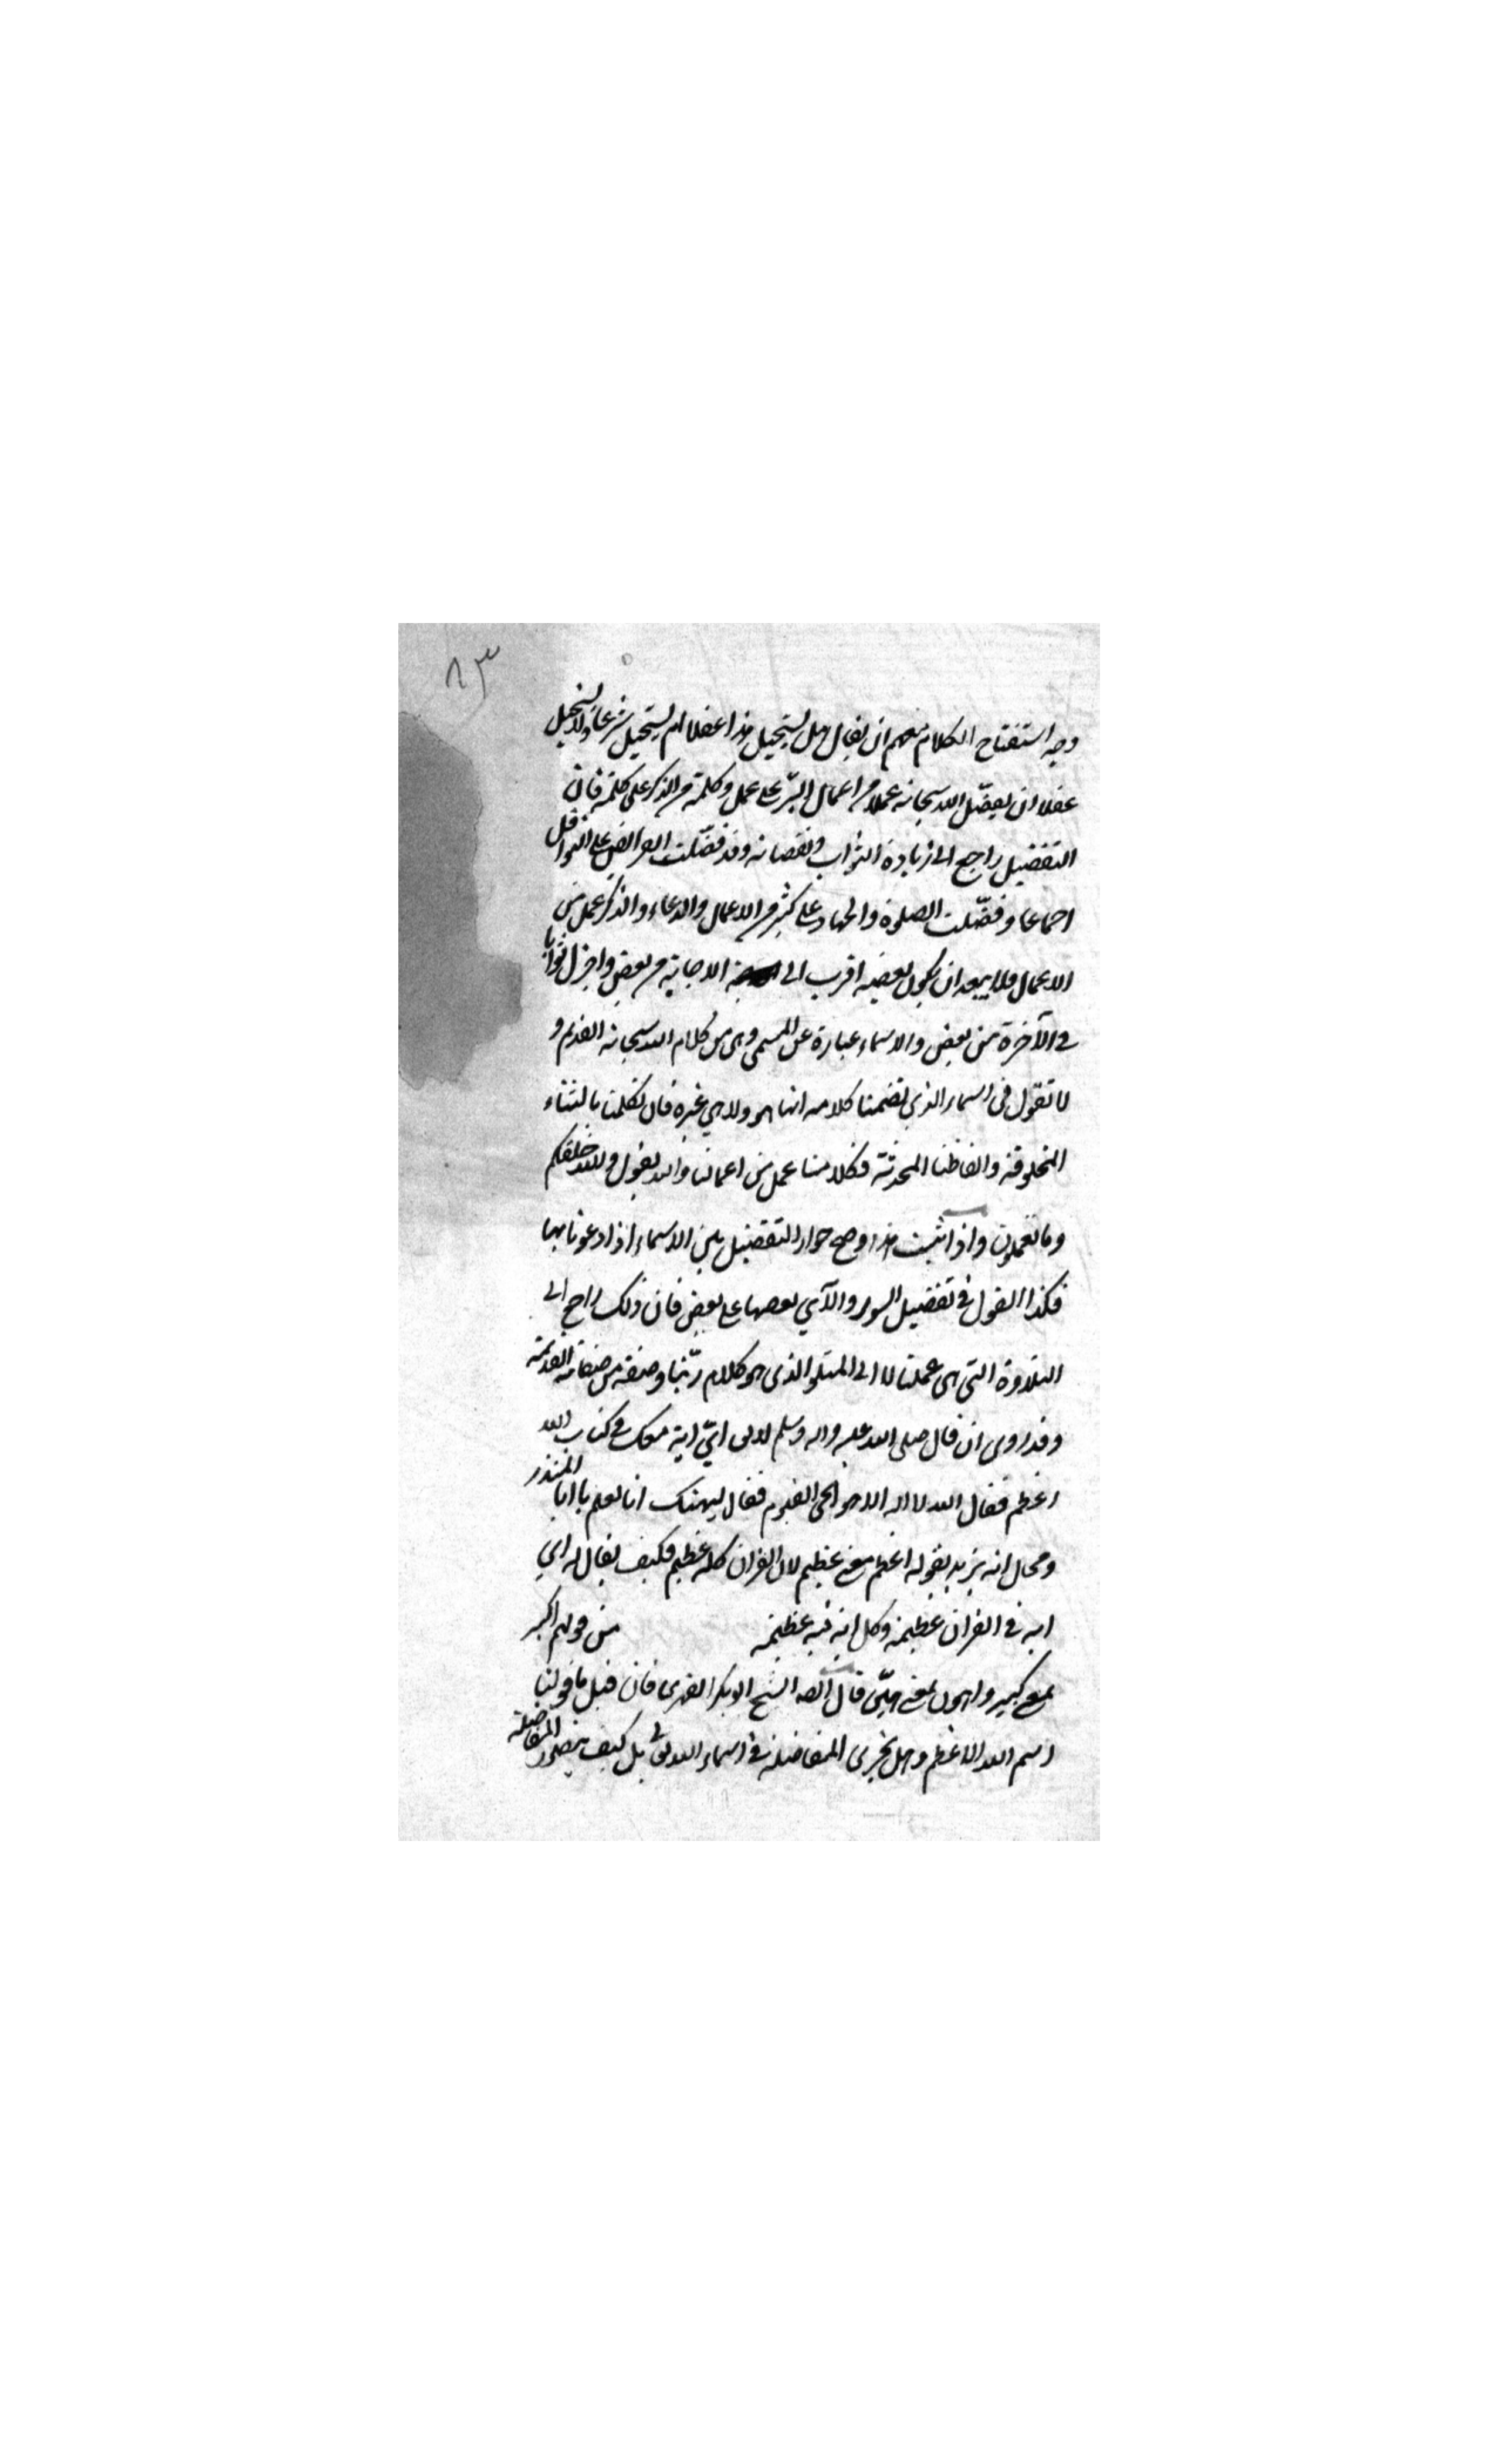 ٨٣
وجه استفتاح الكلام معهم ان يقال هل يستحيل هذا عقلا ام يستحيل شرعا ولا يستحيل
عقلا ان يفضّل الله سبحانه عملا من اعمال البرّ على عمل وكلمة من الذكر على كلمة فان
التفضيل راجع الى زيادة الثواب ونقصانه وقد فضّلت الفرائض على النوافل
اجماعا وفضّلت الصلوة والجهاد على كثير من الاعمال والدعاء والذكر عمل من
الاعمال فلا يبعد ان يكون بعضه اقرب الى الاجابة من بعض واجزل ثوابا
في الآخرة من بعض والاسماء عبارة عن المسمى وهى من كلام الله سبحانه القديم و
لا تقول فى اسماء الذي تضمنا كلامه انها هو ولا هي غيره فان تكلمنا بالثناء
المخلوقة والفاظنا المحدثة فكلامنا عمل من اعمالنا والله يقول والله خلقكم
وما تعملون واذا ثبت هذا وصح جواز التفضيل بين الاسماء اذا دعونا بها
فكذا القول في تفضيل السور والآي بعضها على بعض فان ذلك راجع الى
التلاوة التى هى عملنا لا الى المتلو الذى هو كلام ربّنا وصفة من صفاته القديمة
وقد روى ان قال صلى الله عليه واله وسلم لابى ايّ اية معك في كتاب الله
اعظم فقال الله لا اله الا هو الحى القيوم فقال ليهنك انا لعلم يا ابا المنذر
ومحال انه يريد بقوله اعظم معنى عظيم لان القران كله عظيم فكيف يقال له اي
اية في القران عظيمة وكل اية فيه عظيمة من قولهم اكبر
بمعنى كبير واهون بمعنى هيّن قال الشيخ ابو بكر الفهرى فان قيل ما قولنا
اسم الله الاعظم وهل تجرى المفاضلة في اسماء الله تعالى بل كيف يتصور المفاضلة